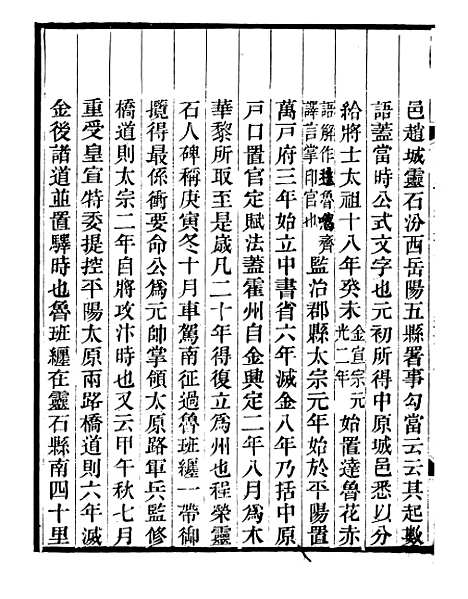 邑趙城靈石汾西岳陽五縣署事勾當云云其起數
語蓋當時公式文字也元初所得中原城邑悉以分
給將士太祖十八年癸未金宣宗元光二年始置達魯花赤
語解作達魯噶齊譯言掌印官也監治郡縣太宗元年始於平陽置
萬戸府三年始立中書省六年滅金八年乃括中原
戸口置官定賦法蓋霍州自金興定二年八月爲木
華黎所取至是歲凡二十年得復立爲州也程榮靈
石人碑稱庚寅冬十月車駕南征過魯班纏一帶御
攬得最係衝要命公爲元帥掌領太原路軍兵監修
橋道則太宗二年自將攻汴時也又云甲午秋七月
重受皇宣特委提控平陽太原兩路橋道則六年滅
金後諸道並置驛時也魯班纏在靈石縣南四十里